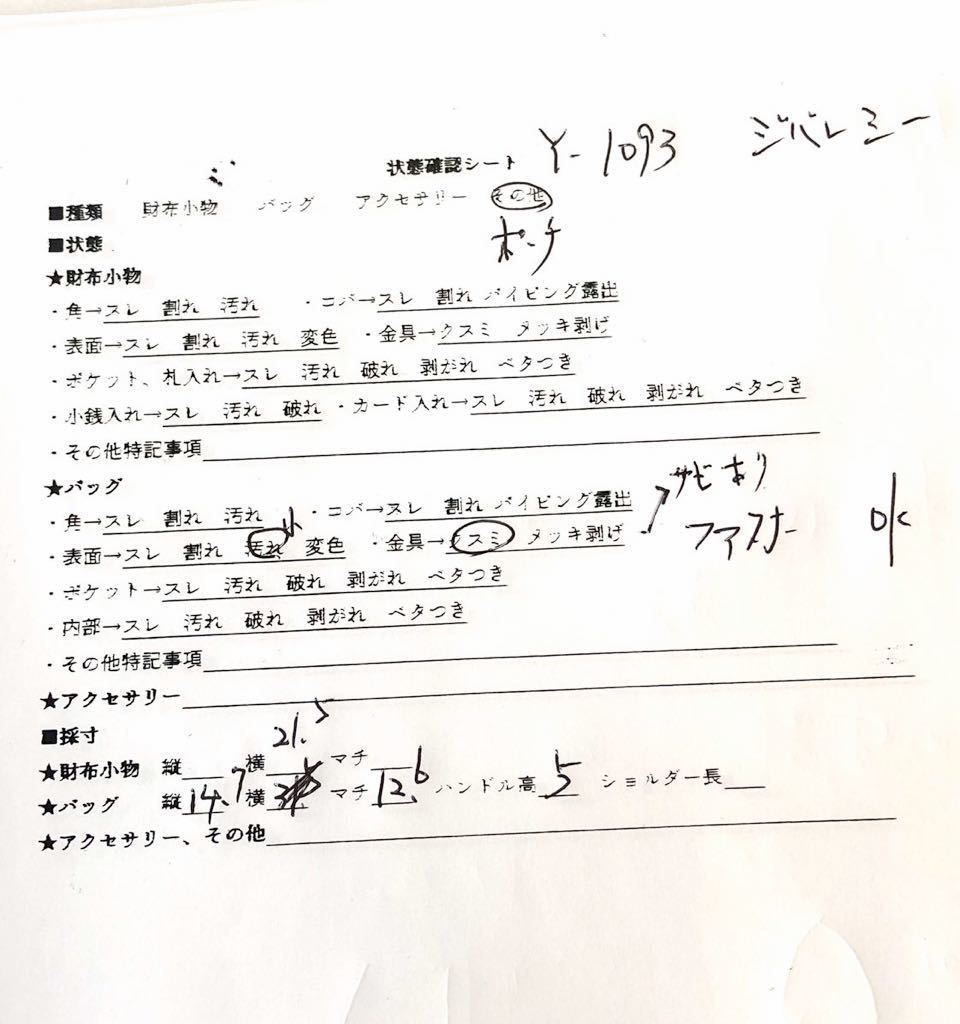 状態確認シート Y-1093 ジバレミー
■種類 財布小物 バッグ アクセサリー その他
■状態 ポーチ
★財布小物
・角→スレ 割れ 汚れ ・コバ→スレ 割れ パイピング露出
・表面→スレ 割れ 汚れ 変色 ・金具→クスミ メッキ剥げ
・ポケット、札入れ→スレ 汚れ 破れ 剥がれ ベタつき
・小銭入れ→スレ 汚れ 破れ ・カード入れ→スレ 汚れ 破れ 剥がれ ベタつき
・その他特記事項
★バッグ サビあり
・角→スレ 割れ 汚れ ・コバ→スレ 割れ パイピング露出
小 ファスナー OK
・表面→スレ 割れ 汚れ 変色 ・金具→クスミ メッキ剥げ
・ポケット→スレ 汚れ 破れ 剥がれ ベタつき
・内部→スレ 汚れ 破れ 剥がれ ベタつき
・その他特記事項
★アクセサリー
■採寸 21.5
★財布小物 縦 横 マチ
★バッグ 縦14.7 横 マチ12.6 ハンドル高5 ショルダー長
★アクセサリー、その他